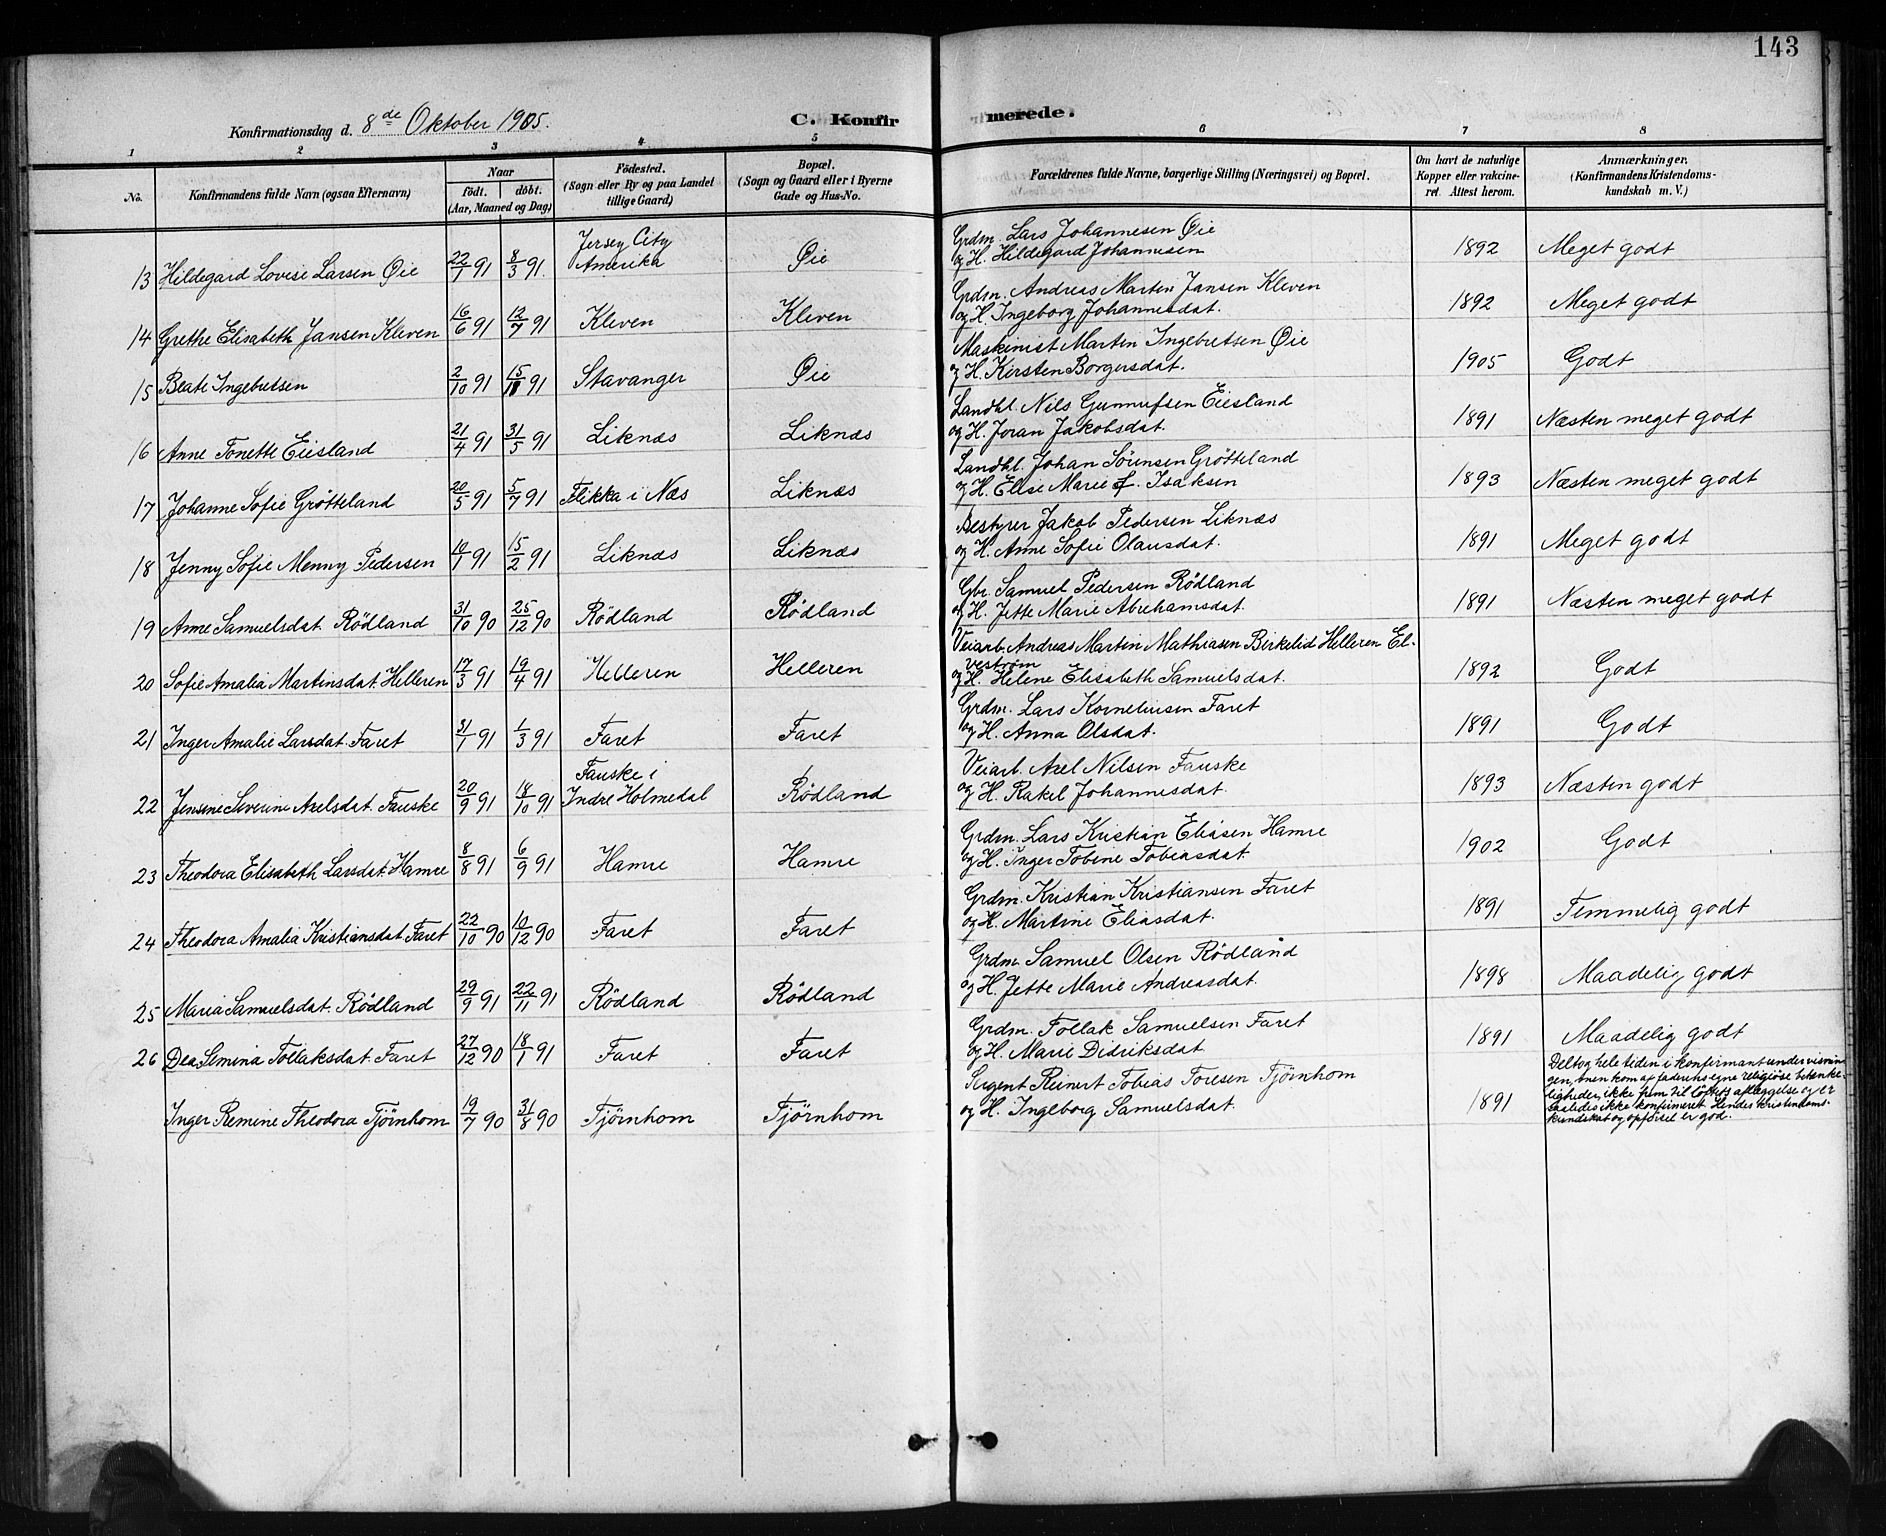 143
Konfirmationsdag d. 8de Oktober 1905.
C. Konfirmerede.
1 2 3 4 5 6 7 8
No.
Konfirmandens fulde Navn (ogsaa Efternavn)
Naar
födt. döbt.
(Aar, Maaned og Dag)
Födested.
(Sogn eller By og paa Landet
tillige Gaard)
Bopæl.
(Sogn og Gaard eller i Byerne
Gade og Hus-No.
Forældrenes fulde Navne, borgerlige Stilling (Næringsvei) og Bopæl.
Om havt de naturlige
Kopper eller vakcine-
ret. Attest herom.
Anmærkninger.
(Konfirmandens Kristendoms-
kundskab m. V.)
13 Hildegard Lovise Larsen Øie 22/1 91 8/3 91. Jersey City
Amerika Øie Grdm. Lars Johannesen Øie
og H. Hildegard Johannesen 1892 Meget godt
14 Grethe Elisabeth Jansen Kleven 16/6 91 12/7 91 Kleven Kleven Grdm. Andreas Marten Jansen Kleven
og H. Ingeborg Johannesdat. 1892 Meget godt
15 Beate Ingebretsen 2/10 91 15/11 91 Stavanger Øie Maskinist Marten Ingebretsen Øie
og H. Kirsten Borgersdat. 1905 Godt
16 Anne Tonette Eiesland 21/4 91 31/5 91 Liknæs Liknæs Landhl. Nils Gunnufsen Eiesland
og H. Joran Jakobsdat. 1891 Næsten meget godt
17 Johanne Sofie Grötteland 20/5 91 5/7 91 Flikka i Næs Liknæs Landhl. Johan Sörensen Grötteland
og H. Elise Marie f. Isaksen 1893 Næsten meget godt
18 Jenny Sofie Menny Pedersen 10/1 91 15/2 91 Liknæs Liknæs Bestyrer Jakob Pedersen Liknæs
og H. Anne Sofie Olausdat. 1891 Meget godt
19 Anne Samuelsdat. Rödland 31/10 90 25/12 90 Rödland Rödland Gbr. Samuel Pedersen Rödland
og H. Jette Marie Abrahamsdat. 1891 Næsten meget godt
20 Sofie Amalia Martinsdat. Helleren 17/3 91 19/4 91 Helleren Helleren Veiarb. Andreas Martin Mathiasen Birkelid Helleren El-
vestrøm
og H. Helene Elisabeth Samuelsdat. 1892 Godt
21 Inger Amalie Larsdat. Faret 31/1 91 1/3 91 Faret Faret Grdm. Lars Korneliusen Faret
og H. Anna Olsdat. 1891 Godt
22 Jensine Severine Axelsdat. Fauske 20/9 91 18/10 91 Fauske i
Indre Holmedal Rödland Veiarb. Axel Nilsen Fauske
og H. Rakel Johannesdat. 1893 Næsten godt
23 Theodora Elisabeth Larsdat. Hamre 8/8 91 6/9 91 Hamre Hamre Grdm. Lars Kristian Eliasen Hamre
og H. Inger Tobine Tobiasdat. 1902 Godt
24 Theodora Amalia Kristiansdat. Faret 22/10 90 10/12 90 Faret Faret Grdm. Kristian Kristiansen Faret
og H. Martine Eliasdat. 1891 Temmelig godt
25 Maria Samuelsdat. Rödland 29/9 91 22/11 91 Rödland Rödland Grdm. Samuel Olsen Rödland
og H. Jette Marie Andreasdat. 1898 Maadelig godt
26 Dea Semina Tollaksdat. Faret 27/12 90 18/1 91 Faret Faret Grdm. Tollak Samuelsen Faret
og H. Marie Didriksdat. 1891 Maadelig godt
Inger Remine Theodora Tjörnhom 19/7 90 31/8 90 Tjörnhom Tjörnhom Sergent Reinert Tobias Toresen Tjörnhom
og H. Ingeborg Samuelsdat. 1891 Deltog hele tiden i konfirmantundervisnin-
gen, men kom af faderens egne religiöse betænke-
ligheder, ikke frem til löftets aflæggelse og er
saaledes ikke konfirmeret. Hendes kristendoms-
kundskab og opförsel er god.